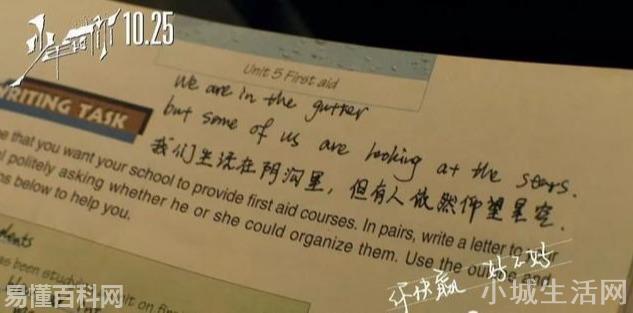 少年的你 10.25
Unit 5 First aid
We are in the gutter
but some of us are looking at the stars.
WRITING TASK
我们生活在阴沟里，但有人依然仰望星空.
e that you want your school to provide first aid courses. In pairs, write a letter to your
l politely asking whether he or she could organize them. Use the outline and
ns below to help you.
dents
as been
快赢 好不好
易懂百科网
小城生活网